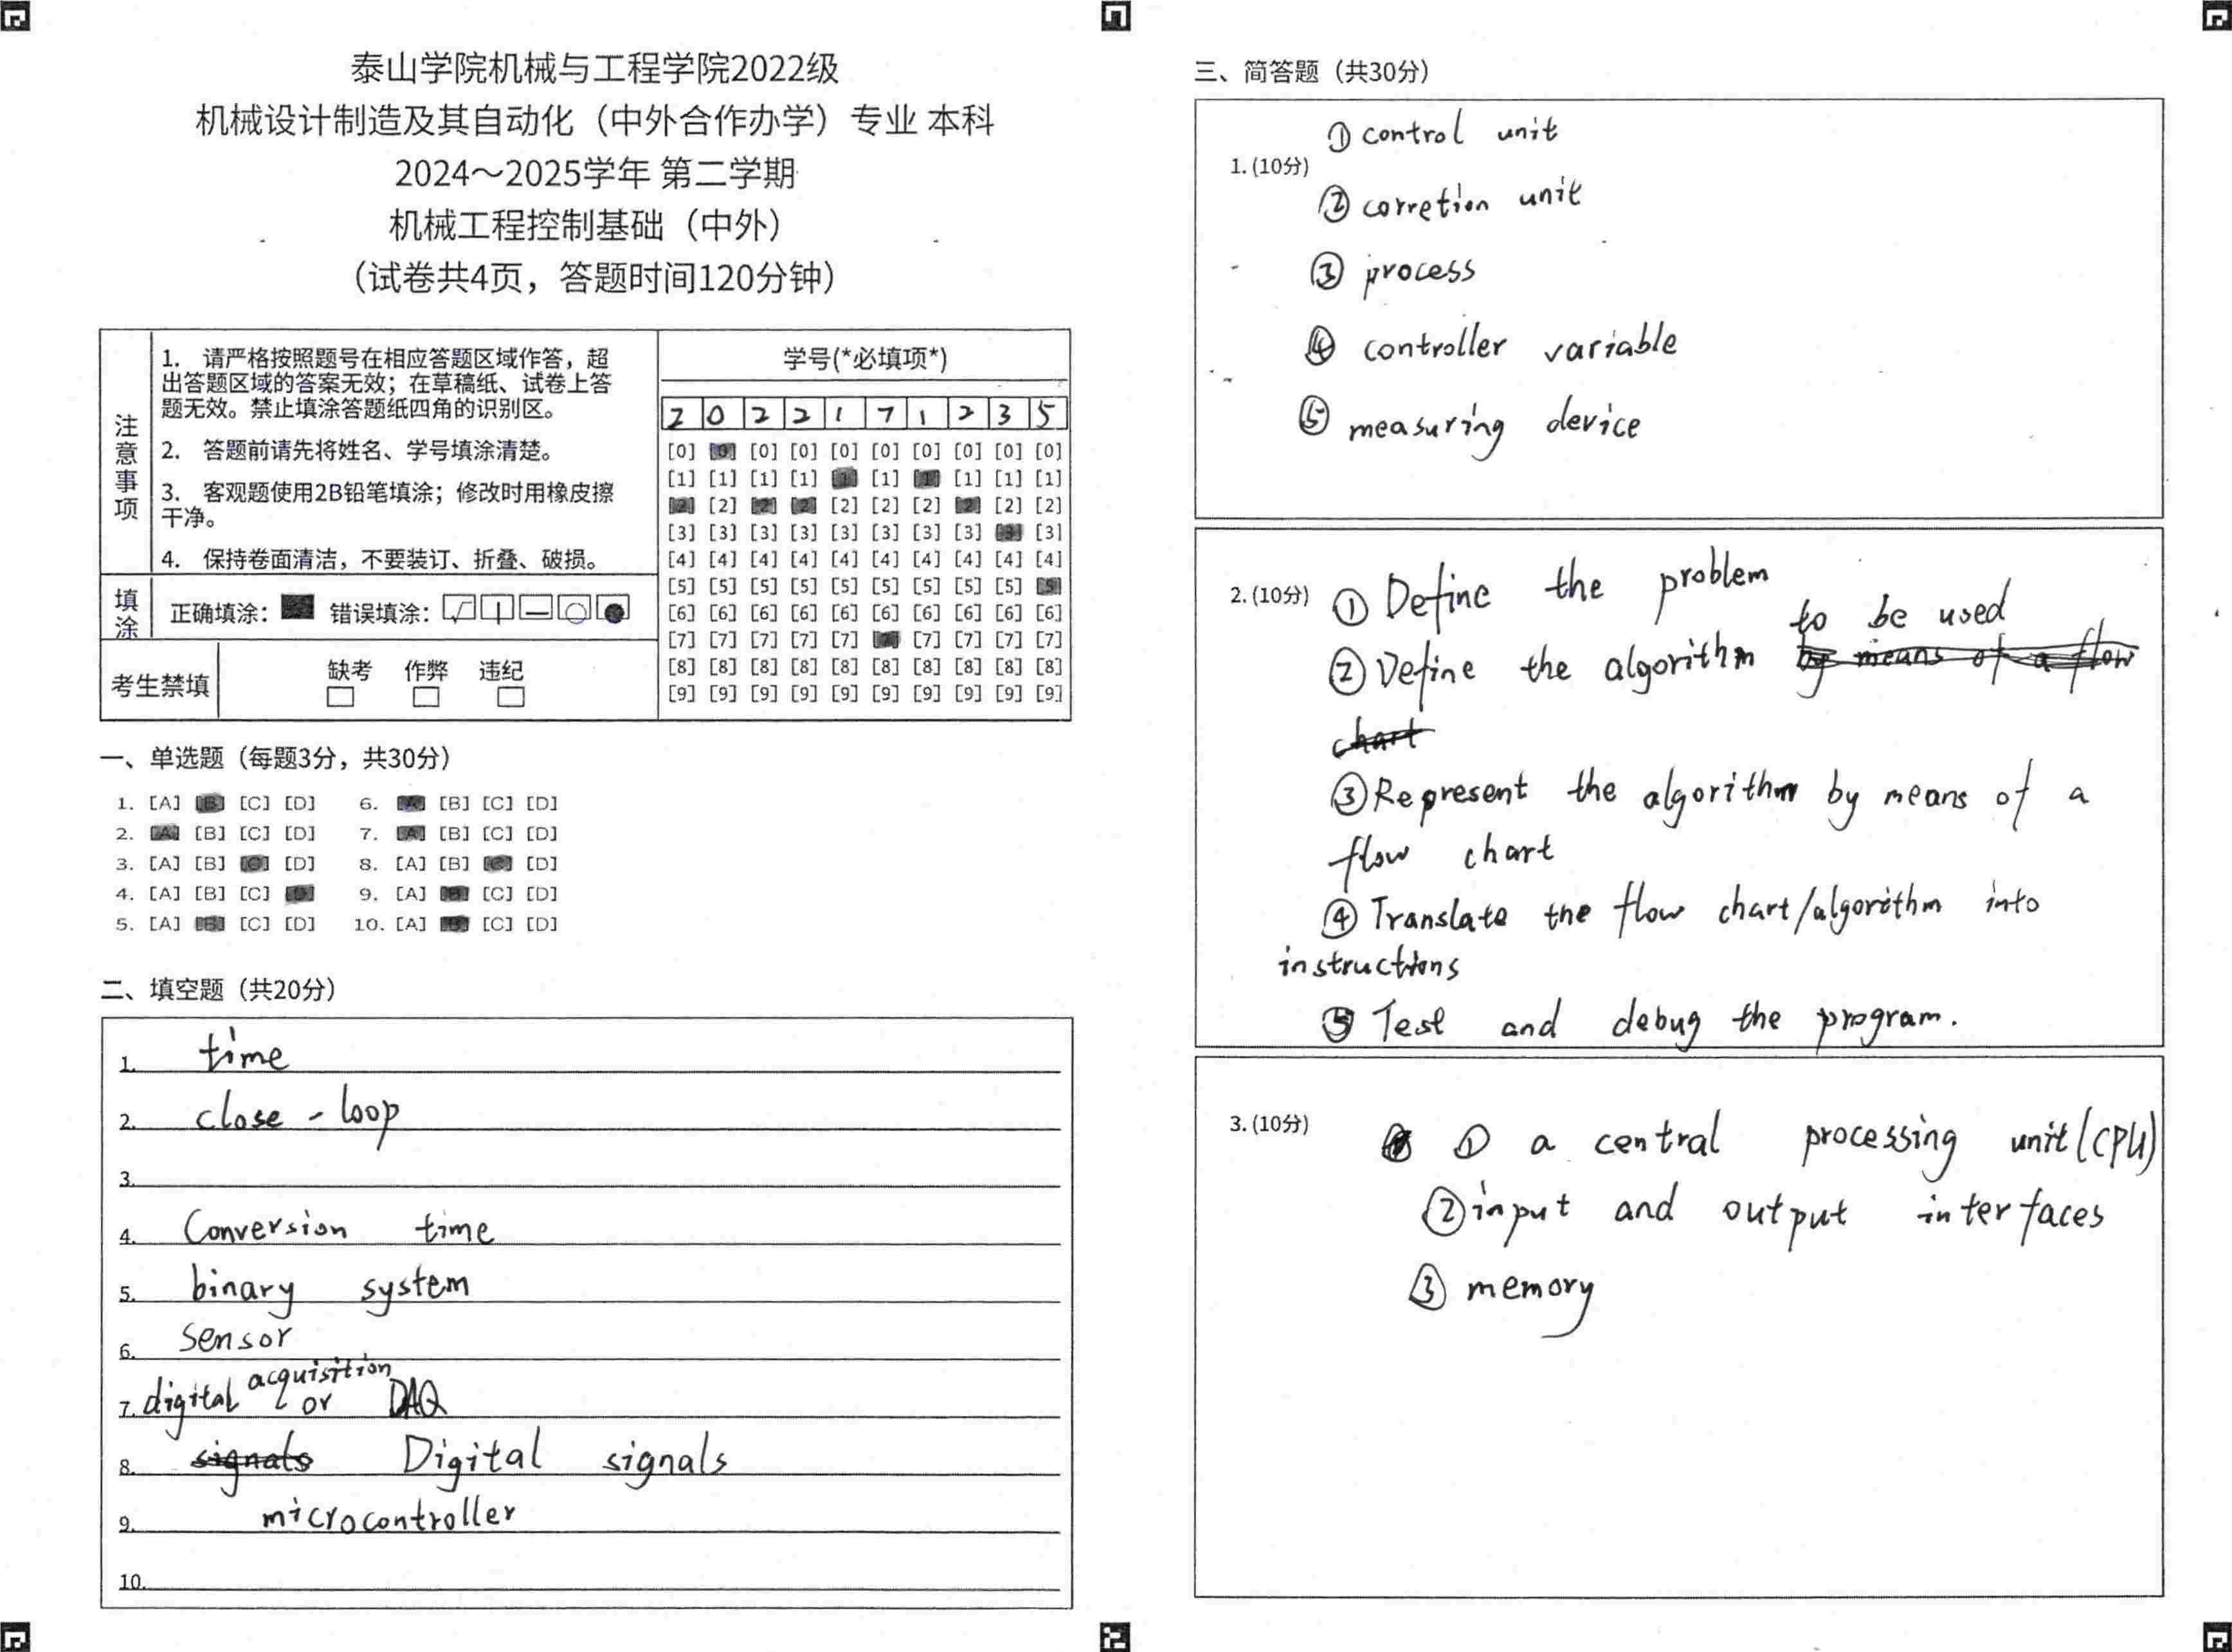 泰山学院机械与工程学院2022级
机械设计制造及其自动化（中外合作办学）专业 本科
2024～2025学年 第二学期
机械工程控制基础（中外）
（试卷共4页，答题时间120分钟）
注意事项
1. 请严格按照题号在相应答题区域作答，超
出答题区域的答案无效；在草稿纸、试卷上答
题无效。禁止填涂答题纸四角的识别区。
2. 答题前请先将姓名、学号填涂清楚。
3. 客观题使用2B铅笔填涂；修改时用橡皮擦
干净。
4. 保持卷面清洁，不要装订、折叠、破损。
填涂
正确填涂： 错误填涂：
考生禁填
缺考 作弊 违纪
学号(*必填项*)
2 0 2 2 1 7 1 2 3 5
[0] [0] [0] [0] [0] [0] [0] [0] [0] [0]
[1] [1] [1] [1] [1] [1] [1] [1] [1] [1]
[2] [2] [2] [2] [2] [2] [2] [2] [2] [2]
[3] [3] [3] [3] [3] [3] [3] [3] [3] [3]
[4] [4] [4] [4] [4] [4] [4] [4] [4] [4]
[5] [5] [5] [5] [5] [5] [5] [5] [5] [5]
[6] [6] [6] [6] [6] [6] [6] [6] [6] [6]
[7] [7] [7] [7] [7] [7] [7] [7] [7] [7]
[8] [8] [8] [8] [8] [8] [8] [8] [8] [8]
[9] [9] [9] [9] [9] [9] [9] [9] [9] [9]
一、单选题（每题3分，共30分）
1. [A] [B] [C] [D] 6. [A] [B] [C] [D]
2. [A] [B] [C] [D] 7. [A] [B] [C] [D]
3. [A] [B] [C] [D] 8. [A] [B] [C] [D]
4. [A] [B] [C] [D] 9. [A] [B] [C] [D]
5. [A] [B] [C] [D] 10. [A] [B] [C] [D]
二、填空题（共20分）
1. time
2. close - loop
3.
4. Conversion time
5. binary system
6. Sensor
7. digital acquisition or DAQ
8. signals Digital signals
9. microcontroller
10.
三、简答题（共30分）
1. (10分)
① control unit
② corretion unit
③ process
④ controller variable
⑤ measuring device
2. (10分) ① Define the problem
to be used
② Define the algorithm by means of a flow
chart
③ Represent the algorithm by means of a
flow chart
④ Translate the flow chart/algorithm into
instructions
⑤ Test and debug the program.
3. (10分) ① a central processing unit(CPU)
② input and output interfaces
③ memory